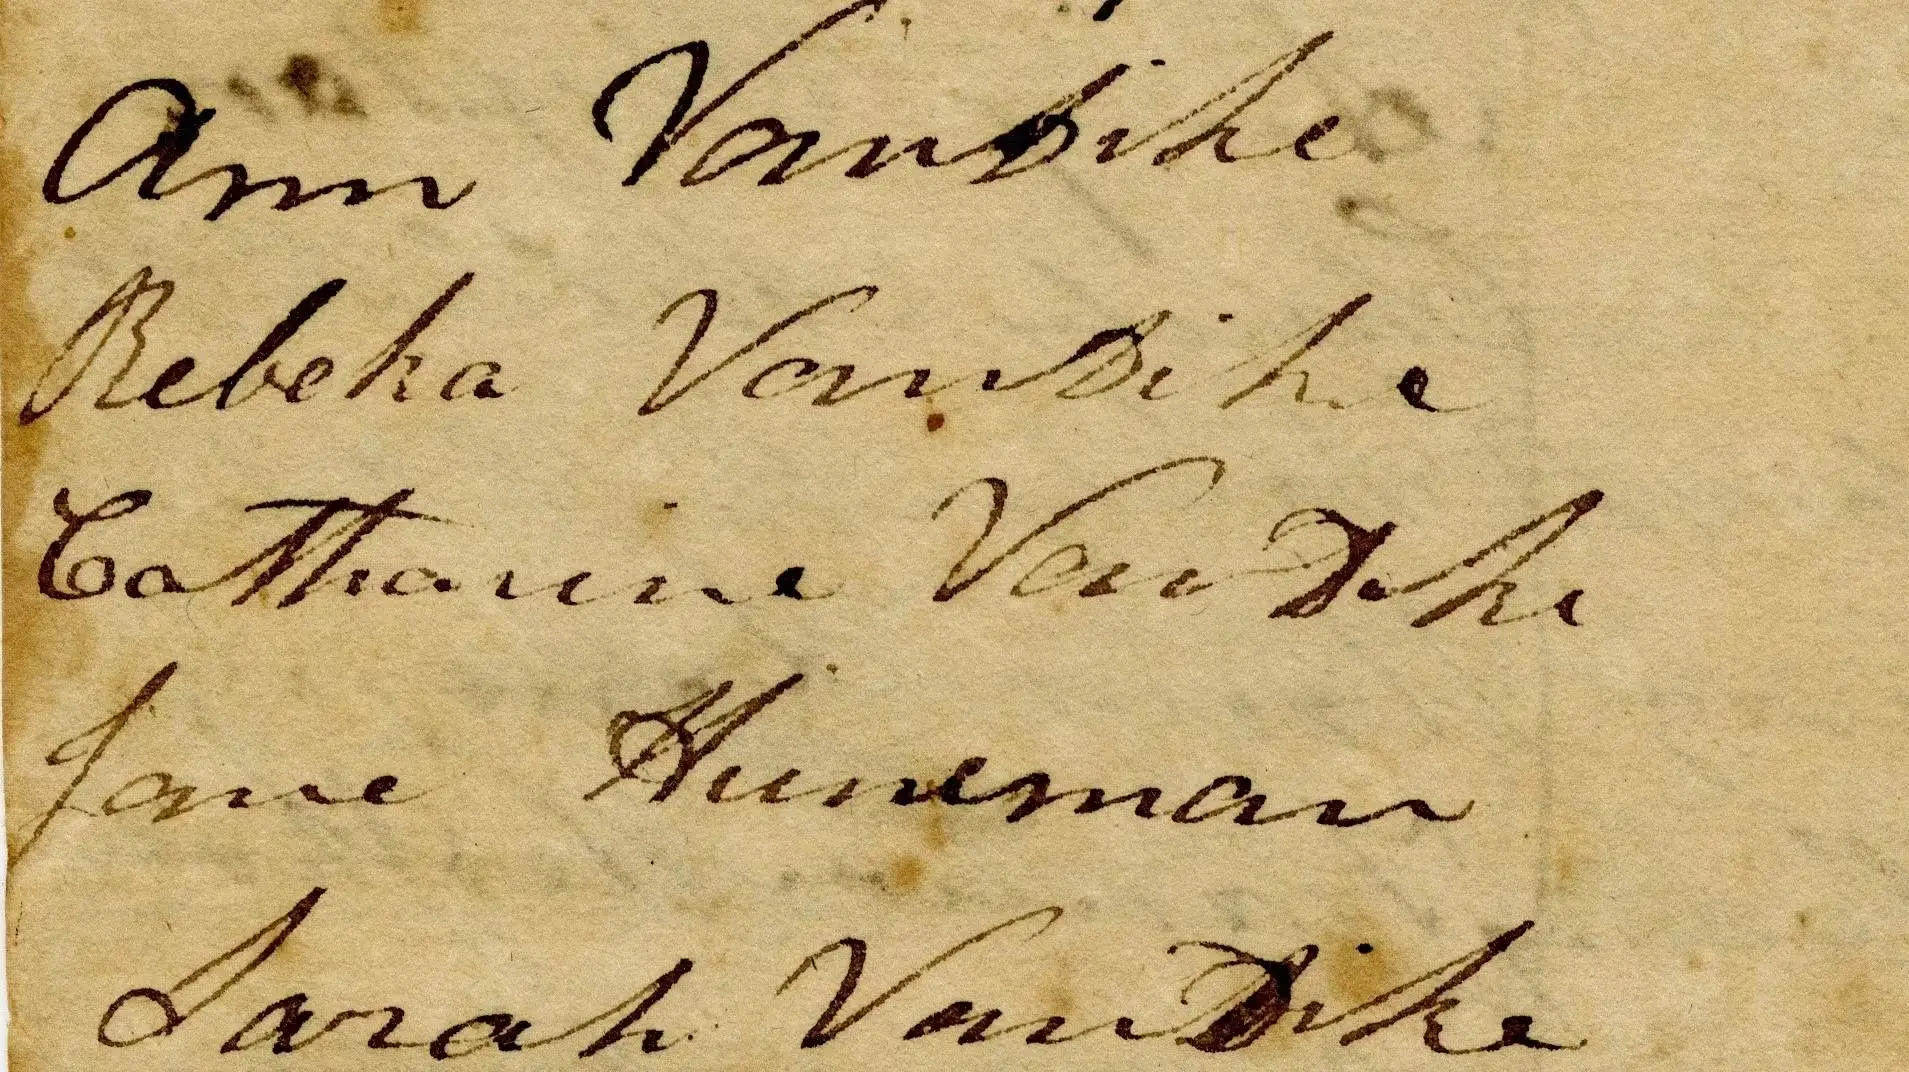 Ann VanDike
Rebeka VanDike
Catharine VanDike
Jane Huneman
Sarah VanDike